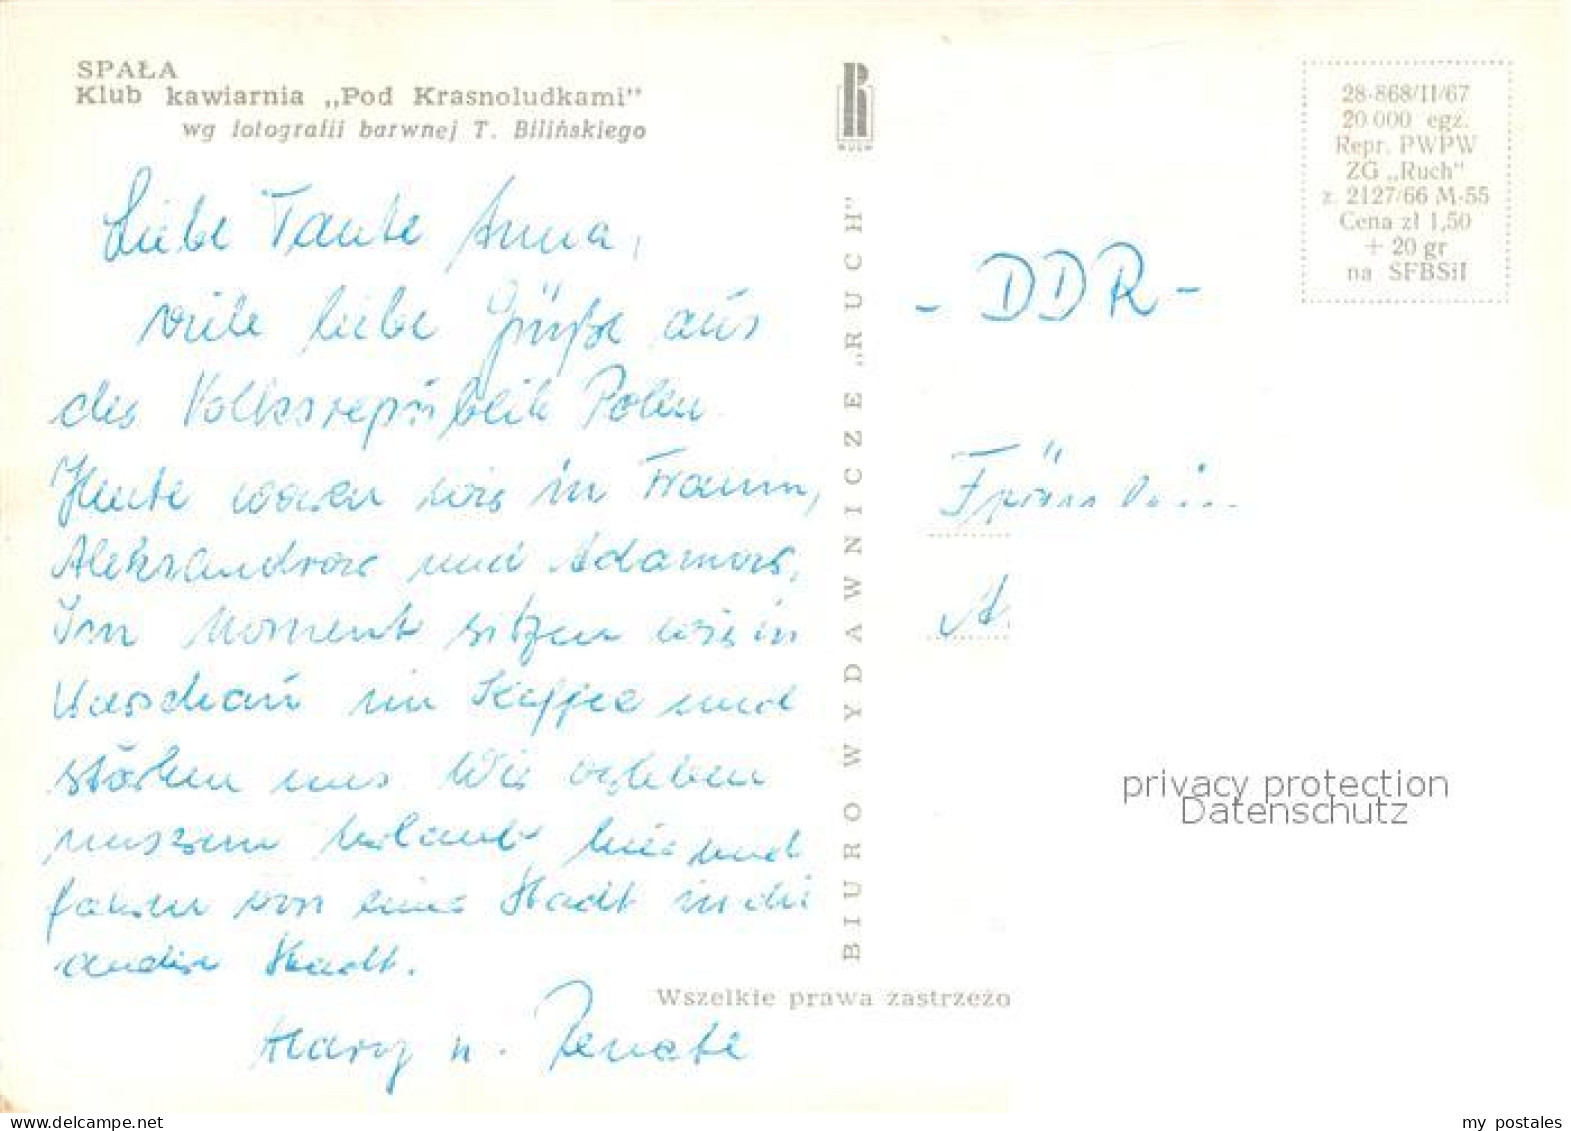 SPAŁA
Klub kawiarnia „Pod Krasnoludkami"
wg fotografii barwnej T. Bilińskiego
RUCH
28-868/II/67
20 000 egz.
Repr. PWPW
ZG „Ruch"
z. 2127/66 M-55
Cena zł 1,50
+ 20 gr
na SFBSiI
Liebe Tante Anna,
viele liebe Grüße aus
der Volksrepublik Polen.
Heute waren wir in
Aleksandrow und Adamow.
Im Moment sitzen wir in
Warschau im Kaffee und
stärken uns. Wir erleben
unseren Urlaub hier und
fahren von einer Stadt in die
andere Stadt.
Mary u. Renate
BIURO WYDAWNICZE „RUCH"
- DDR -
Fräulein
A
Wszelkie prawa zastrzeżo
privacy protection
Datenschutz
delcampe.net
my_postales